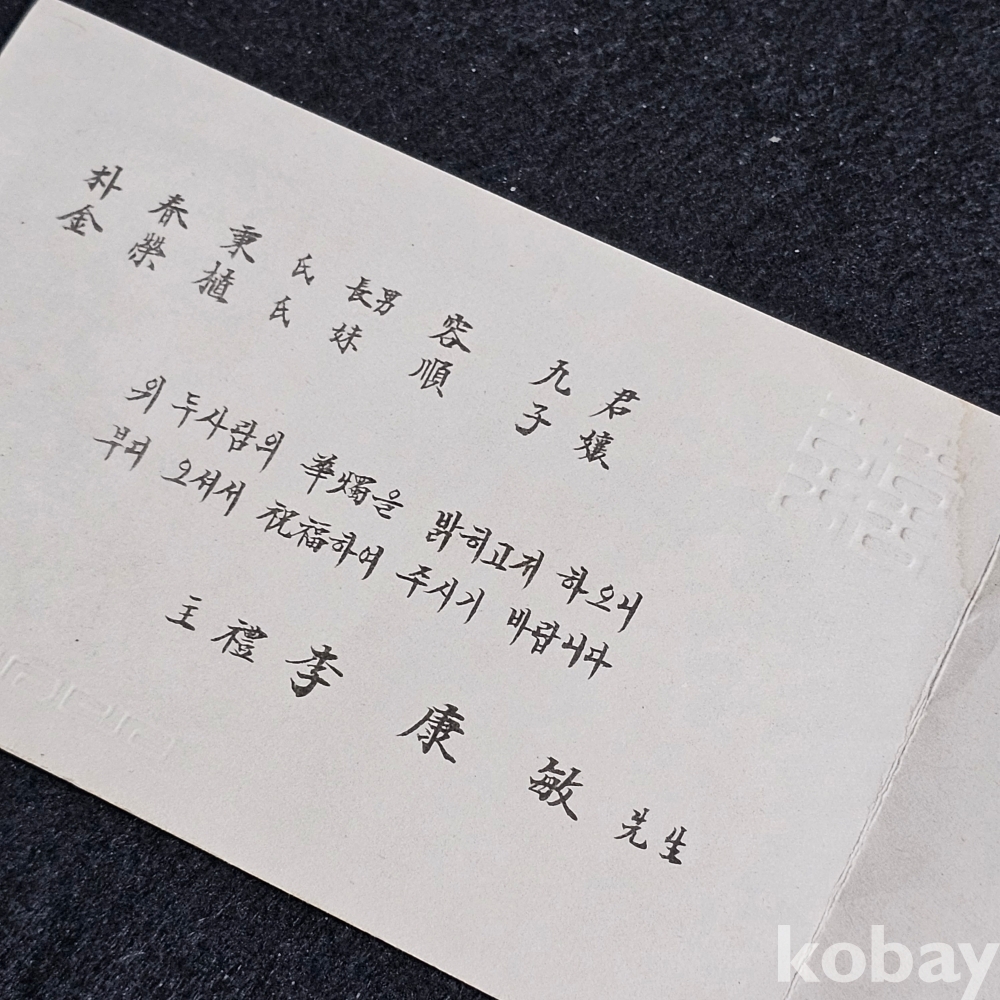 朴春秉氏 長男 容九君
金榮植氏 妹 順子孃
의 두사람의 華燭을 밝히고저 하오니
부디 오셔서 祝福하여 주시기 바랍니다
主禮 李康敏 先生
kobay